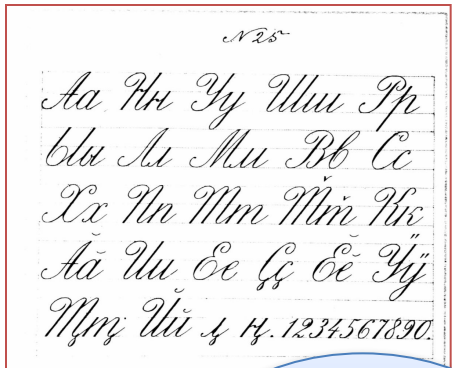 № 25
Аа Нн Уу Шш Рр
Ыы Лл Мм Вв Сс
Хх Пп Тт Т̌т̌ Кк
Ӑӑ Ии Ее Ҫҫ Ӗӗ Ӱӱ
Т̡т̡ Йй ԡ ԣ. 1234567890.